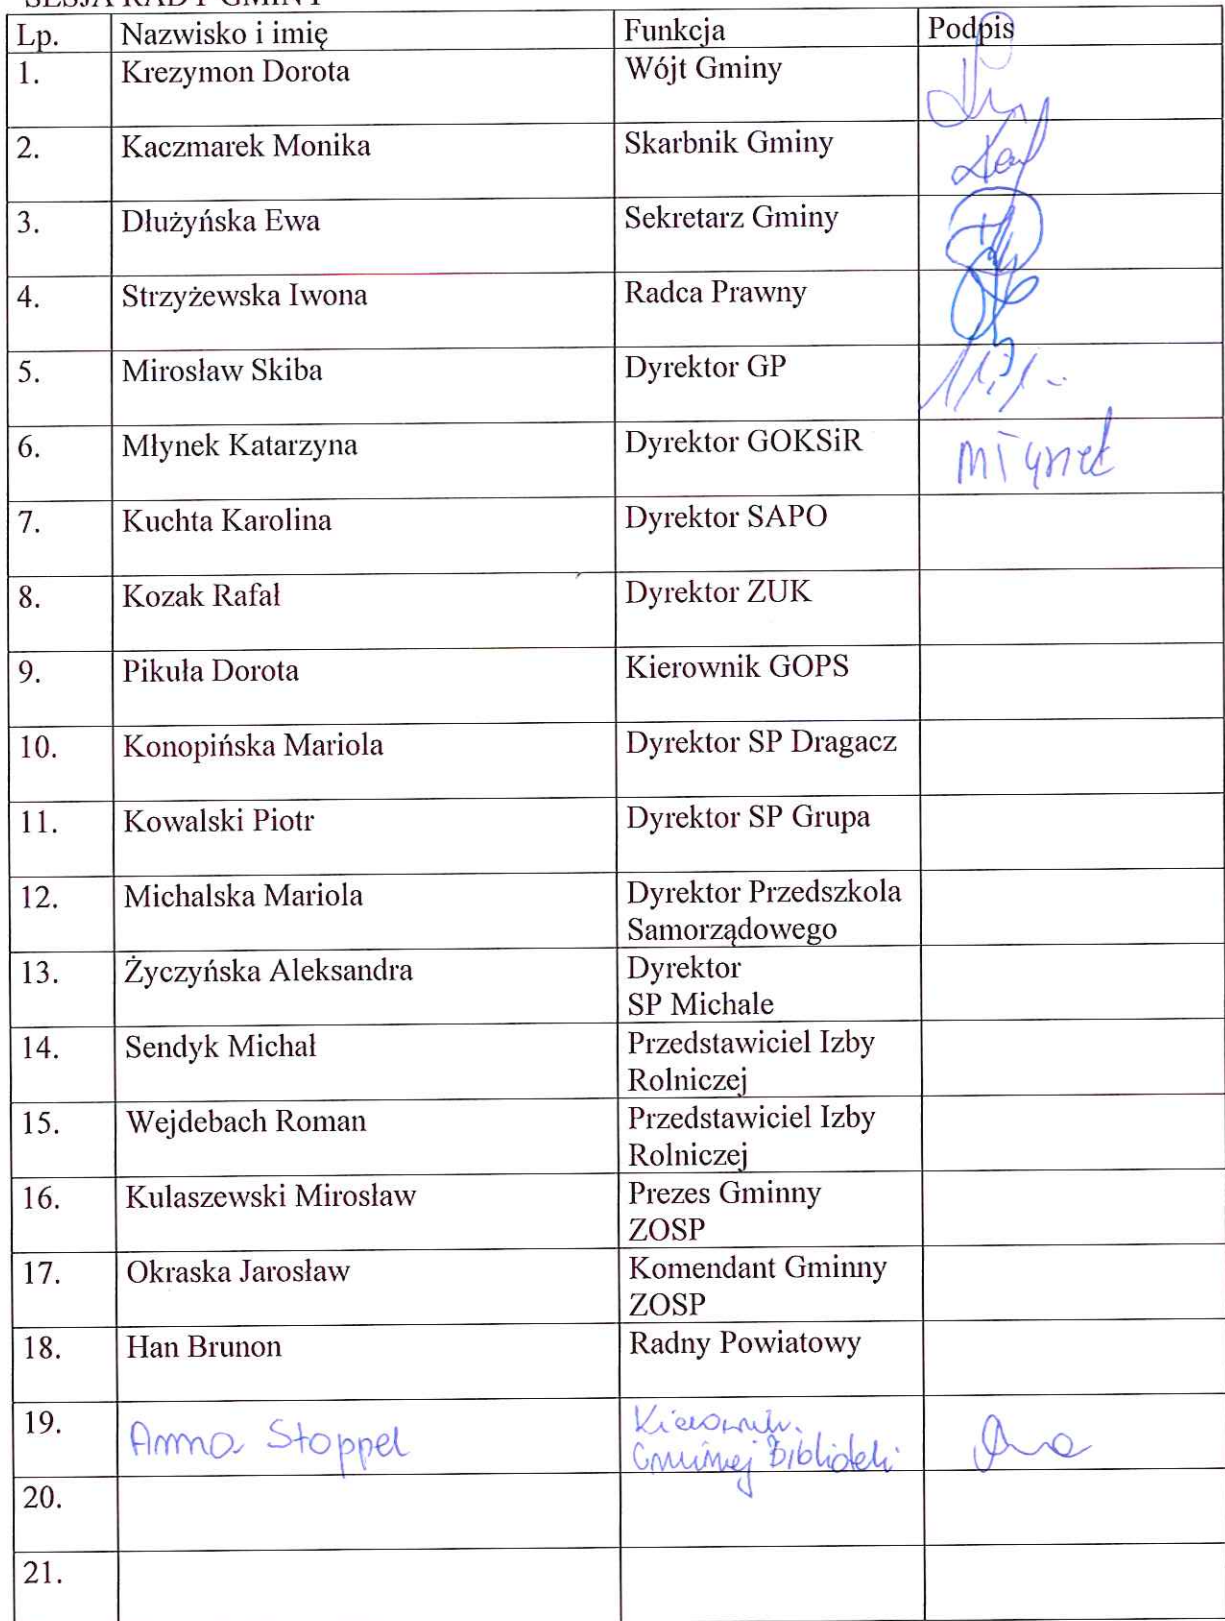 SESJA RADY GMINY
Lp. Nazwisko i imię Funkcja Podpis
1. Krezymon Dorota Wójt Gminy
2. Kaczmarek Monika Skarbnik Gminy
3. Dłużyńska Ewa Sekretarz Gminy
4. Strzyżewska Iwona Radca Prawny
5. Mirosław Skiba Dyrektor GP
6. Młynek Katarzyna Dyrektor GOKSiR Młynek
7. Kuchta Karolina Dyrektor SAPO
8. Kozak Rafał Dyrektor ZUK
9. Pikuła Dorota Kierownik GOPS
10. Konopińska Mariola Dyrektor SP Dragacz
11. Kowalski Piotr Dyrektor SP Grupa
12. Michalska Mariola Dyrektor Przedszkola
Samorządowego
13. Życzyńska Aleksandra Dyrektor
SP Michale
14. Sendyk Michał Przedstawiciel Izby
Rolniczej
15. Wejdebach Roman Przedstawiciel Izby
Rolniczej
16. Kulaszewski Mirosław Prezes Gminny
ZOSP
17. Okraska Jarosław Komendant Gminny
ZOSP
18. Han Brunon Radny Powiatowy
19. Anna Stoppel Kierownik
Gminnej Biblioteki
20.
21.